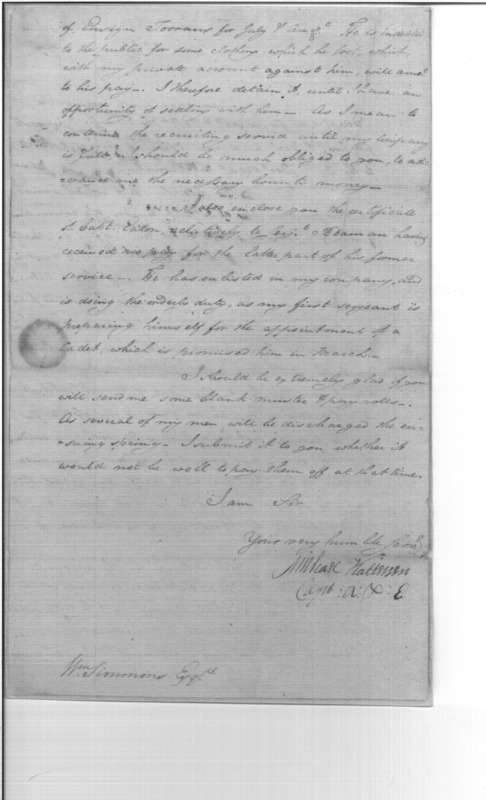 of Ensign Torrans for July & Augt. He is indebted
to the public for some clothing which he lost, which
with my private account against him, will amt.
to his pay—. I therefore detain it, until I have an
opportunity of settling with him—. As I mean to
continue the recruiting service until my company
is full, I should be much obliged to you, to ad-
vance me the necessary bounty money—
I also enclose you the certificate
of Capt. Eaton relatively to Serjt. Beaman having
received no pay for the latter part of his former
service—. He has enlisted in my company, and
is doing the orderly duty, as my first sergeant is
preparing himself for the appointment of a
Cadet, which is promised him in March.
I should be extremely glad if you
will send me some blank muster & pay rolls—.
As several of my men will be discharged the en-
suing spring— I submit it to you whether it
would not be well to pay them off at that time.
I am Sir
Your very humble Servt.
Michael Kalteisen
Capt: A & E
Wm. Simmons Esqr.